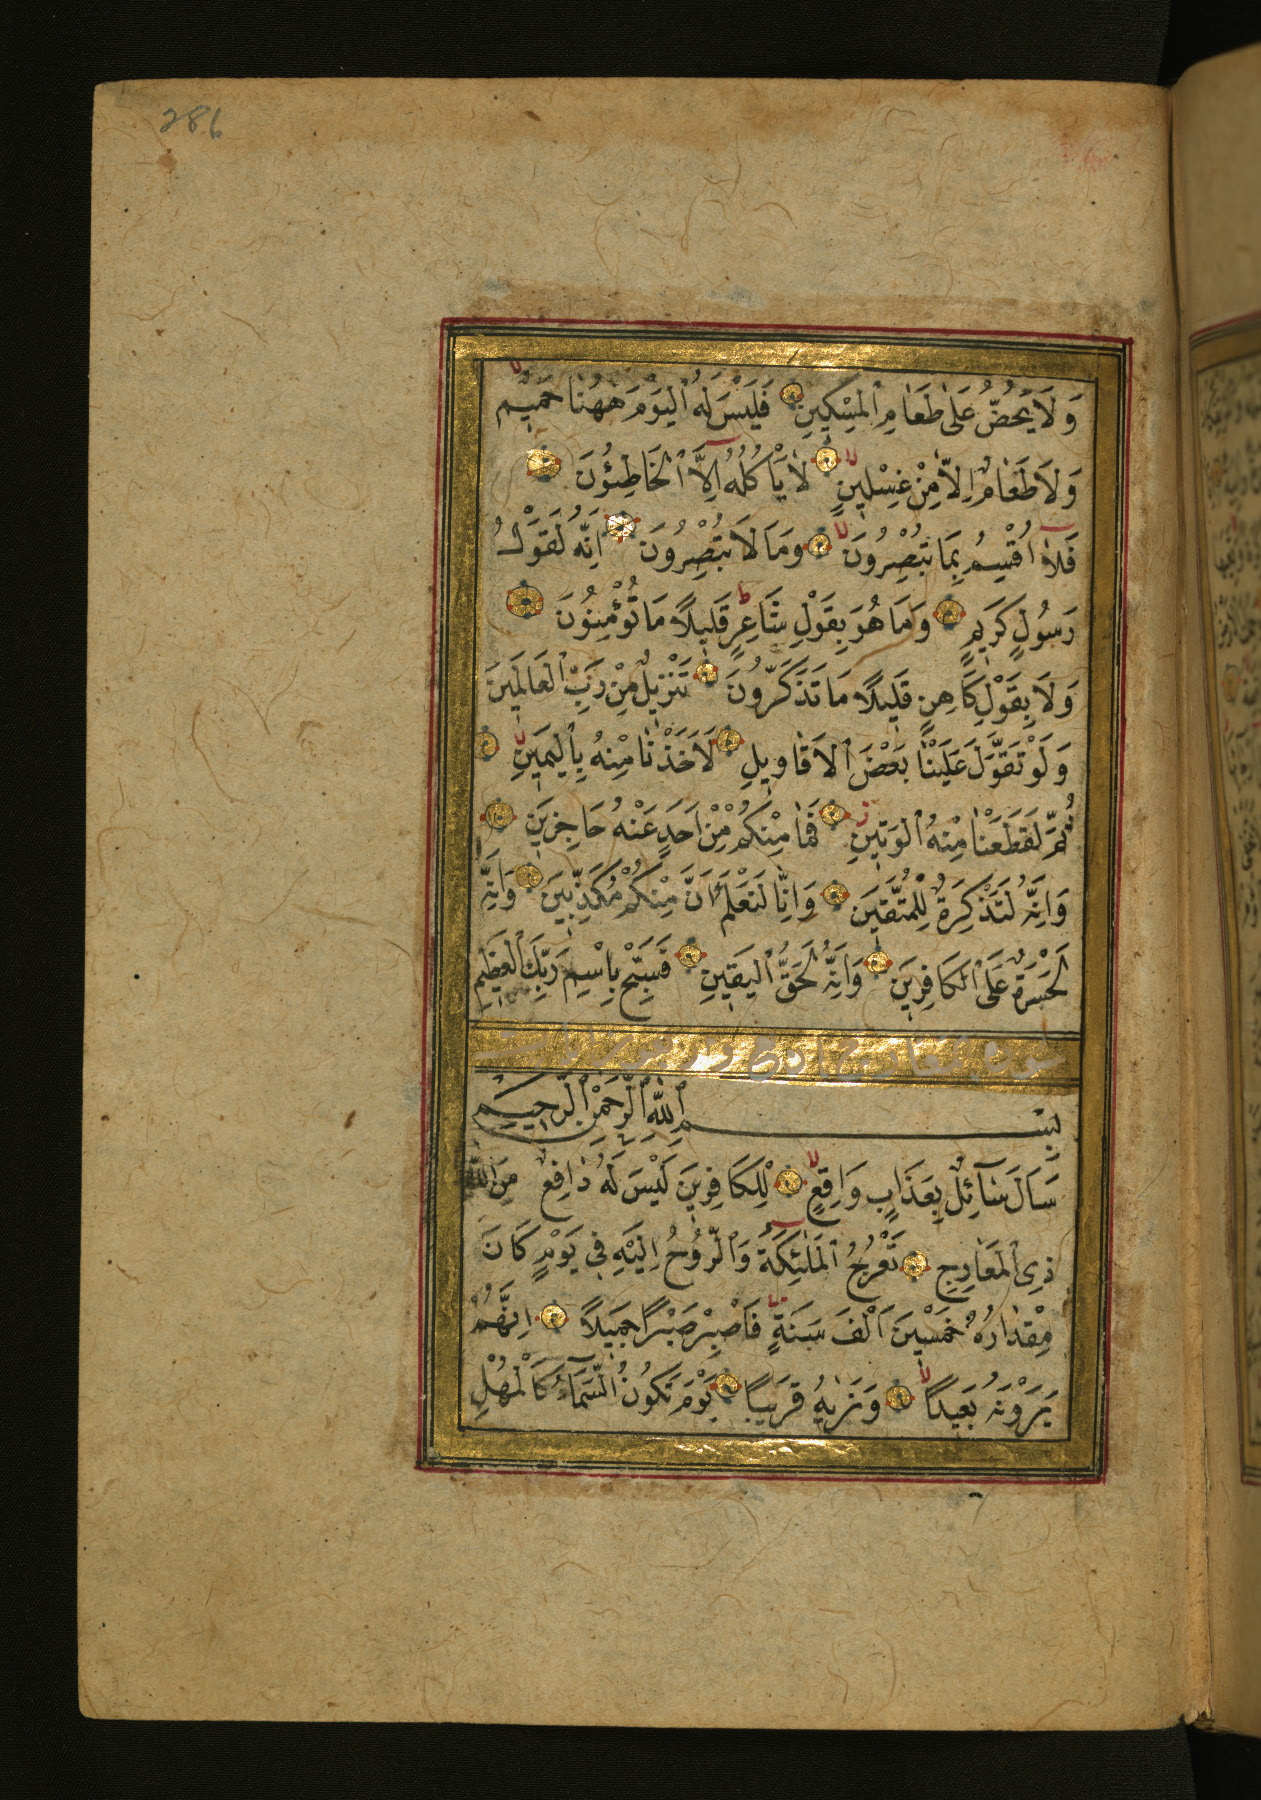 286
وَلَا يَحُضُّ عَلٰى طَعَامِ ٱلْمِسْكِينِ فَلَيْسَ لَهُ ٱلْيَوْمَ هٰهُنَا حَمِيمٌ
وَلَا طَعَامٌ اِلَّا مِنْ غِسْلِينٍ لَا يَأْكُلُهُ اِلَّا ٱلْخَاطِئُونَ
فَلَا اُقْسِمُ بِمَا تُبْصِرُونَ وَمَا لَا تُبْصِرُونَ اِنَّهُ لَقَوْلُ
رَسُولٍ كَرِيمٍ وَمَا هُوَ بِقَوْلِ شَاعِرٍ قَلِيلًا مَا تُؤْمِنُونَ
وَلَا بِقَوْلِ كَاهِنٍ قَلِيلًا مَا تَذَكَّرُونَ تَنْزِيلٌ مِنْ رَبِّ ٱلْعَالَمِينَ
وَلَوْ تَقَوَّلَ عَلَيْنَا بَعْضَ ٱلْاَقَاوِيلِ لَاَخَذْنَا مِنْهُ بِٱلْيَمِينِ
ثُمَّ لَقَطَعْنَا مِنْهُ ٱلْوَتِينَ فَمَا مِنْكُمْ مِنْ اَحَدٍ عَنْهُ حَاجِزِينَ
وَاِنَّهُ لَتَذْكِرَةٌ لِلْمُتَّقِينَ وَاِنَّا لَنَعْلَمُ اَنَّ مِنْكُمْ مُكَذِّبِينَ وَاِنَّهُ
لَحَسْرَةٌ عَلَى ٱلْكَافِرِينَ وَاِنَّهُ لَحَقُّ ٱلْيَقِينِ فَسَبِّحْ بِاسْمِ رَبِّكَ ٱلْعَظِيمِ
سورة المعارج
بِسْمِ ٱللّٰهِ ٱلرَّحْمٰنِ ٱلرَّحِيمِ
سَاَلَ سَآئِلٌ بِعَذَابٍ وَاقِعٍ لِلْكَافِرِينَ لَيْسَ لَهُ دَافِعٌ مِنَ ٱللّٰهِ
ذِى ٱلْمَعَارِجِ تَعْرُجُ ٱلْمَلٰئِكَةُ وَٱلرُّوحُ اِلَيْهِ فِى يَوْمٍ كَانَ
مِقْدَارُهُ خَمْسِينَ اَلْفَ سَنَةٍ فَاصْبِرْ صَبْرًا جَمِيلًا اِنَّهُمْ
يَرَوْنَهُ بَعِيدًا وَنَرٰيهُ قَرِيبًا يَوْمَ تَكُونُ ٱلسَّمَآءُ كَٱلْمُهْلِ